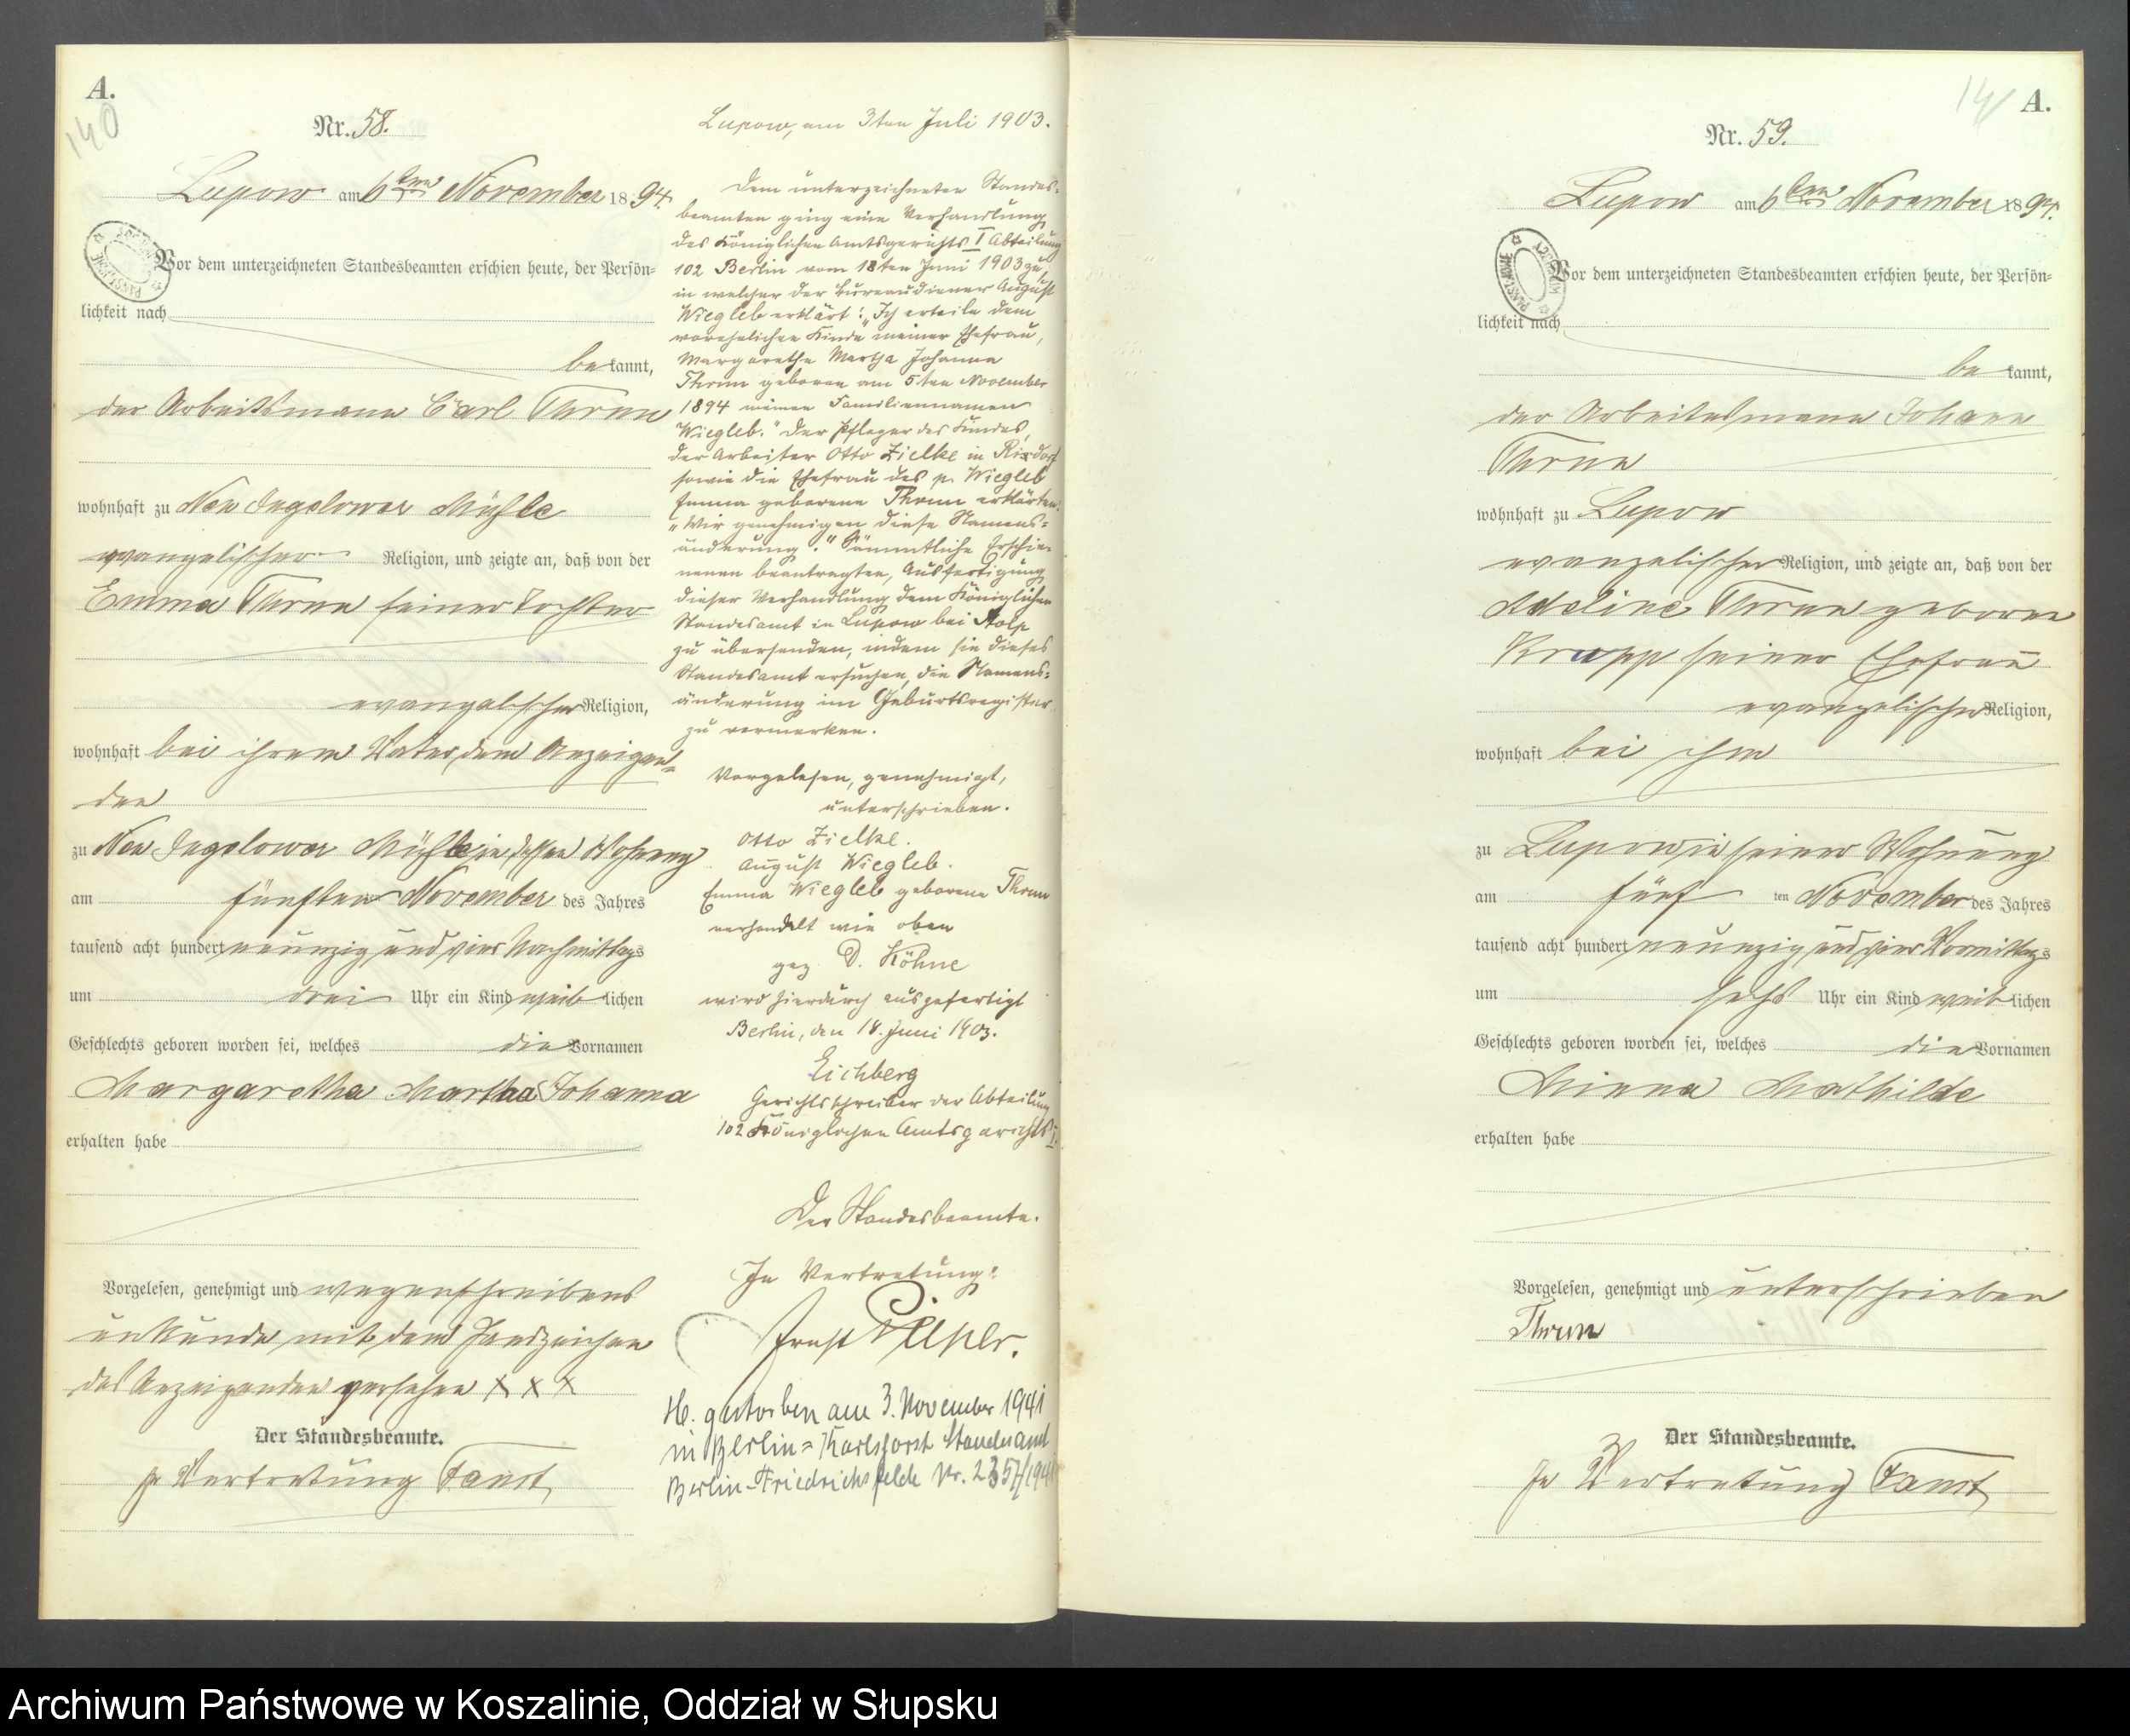 A.
140
Nr. 58.
Lupow am 6ten November 1894.
Vor dem unterzeichneten Standesbeamten erschien heute, der Persön=
lichkeit nach
bekannt,
der Arbeitsmann Carl Thrun
wohnhaft zu Neu Jugelower Mühle
evangelischer Religion, und zeigte an, daß von der
Emma Thrun seiner Tochter
evangelischer Religion,
wohnhaft bei ihrem Vater, dem Anzeigen=
den
zu Neu Jugelower Mühle in dessen Wohnung
am fünften November des Jahres
tausend acht hundert neunzig und vier Nachmittags
um drei Uhr ein Kind weiblichen
Geschlechts geboren worden sei, welches die Vornamen
Margaretha Martha Johanna
erhalten habe
Vorgelesen, genehmigt und wegen Schreibens
unkunde mit dem Handzeichen
des Anzeigenden versehen X X X
Der Standesbeamte.
In Vertretung Faust
Lupow, am 3ten Juli 1903.
Dem unterzeichneten Standes=
beamten ging eine Verhandlung
des Königlichen Amtsgerichts I Abteilung
102 Berlin vom 18ten Juni 1903 zu,
in welcher der Bureaudiener August
Wiegleb erklärt: "Ich erteile dem
vorehelichen Kinde meiner Ehefrau,
Margarethe Martha Johanna
Thrun geboren am 5ten November
1894 meinen Familiennamen
Wiegleb." Der Pfleger des Kindes,
der Arbeiter Otto Zielke in Rixdorf
sowie die Ehefrau des p. Wiegleb
Emma geborene Thrun erklärten:
"Wir genehmigen diese Namens=
änderung." Sämmtliche Erschie=
nenen beantragten, Ausfertigung
dieser Verhandlung dem Königlichen
Standesamt in Lupow bei Stolp
zu übersenden, indem sie dieses
Standesamt ersuchen, die Namens=
änderung im Geburtsregister
zu vermerken.
Vorgelesen, genehmigt,
unterschrieben.
Otto Zielke.
August Wiegleb.
Emma Wiegleb geborene Thrun
verhandelt wie oben
gez. D. Köhne
wird hierdurch ausgefertigt
Berlin, den 18. Juni 1903.
Eichberg
Gerichtsschreiber der Abteilung
102 Königlichen Amtsgerichts I.
Der Standesbeamte.
In Vertretung:
Ernst Pieper.
H. gestorben am 3. November 1941
in Berlin=Karlshorst Standesamt
Berlin-Friedrichsfelde Nr. 2357/1941
141 A.
Nr. 59.
Lupow am 6ten November 1894.
Vor dem unterzeichneten Standesbeamten erschien heute, der Persön=
lichkeit nach
bekannt,
der Arbeitsmann Johann
Thrun
wohnhaft zu Lupow
evangelischer Religion, und zeigte an, daß von der
Adeline Thrun geborne
Krupp seiner Ehefrau
evangelischer Religion,
wohnhaft bei ihm
zu Lupow in seiner Wohnung
am fünften November des Jahres
tausend acht hundert neunzig und vier Vormittags
um sechs Uhr ein Kind weiblichen
Geschlechts geboren worden sei, welches die Vornamen
Minna Mathilde
erhalten habe
Vorgelesen, genehmigt und unterschrieben
Thrun
Der Standesbeamte.
In Vertretung Faust
Archiwum Państwowe w Koszalinie, Oddział w Słupsku